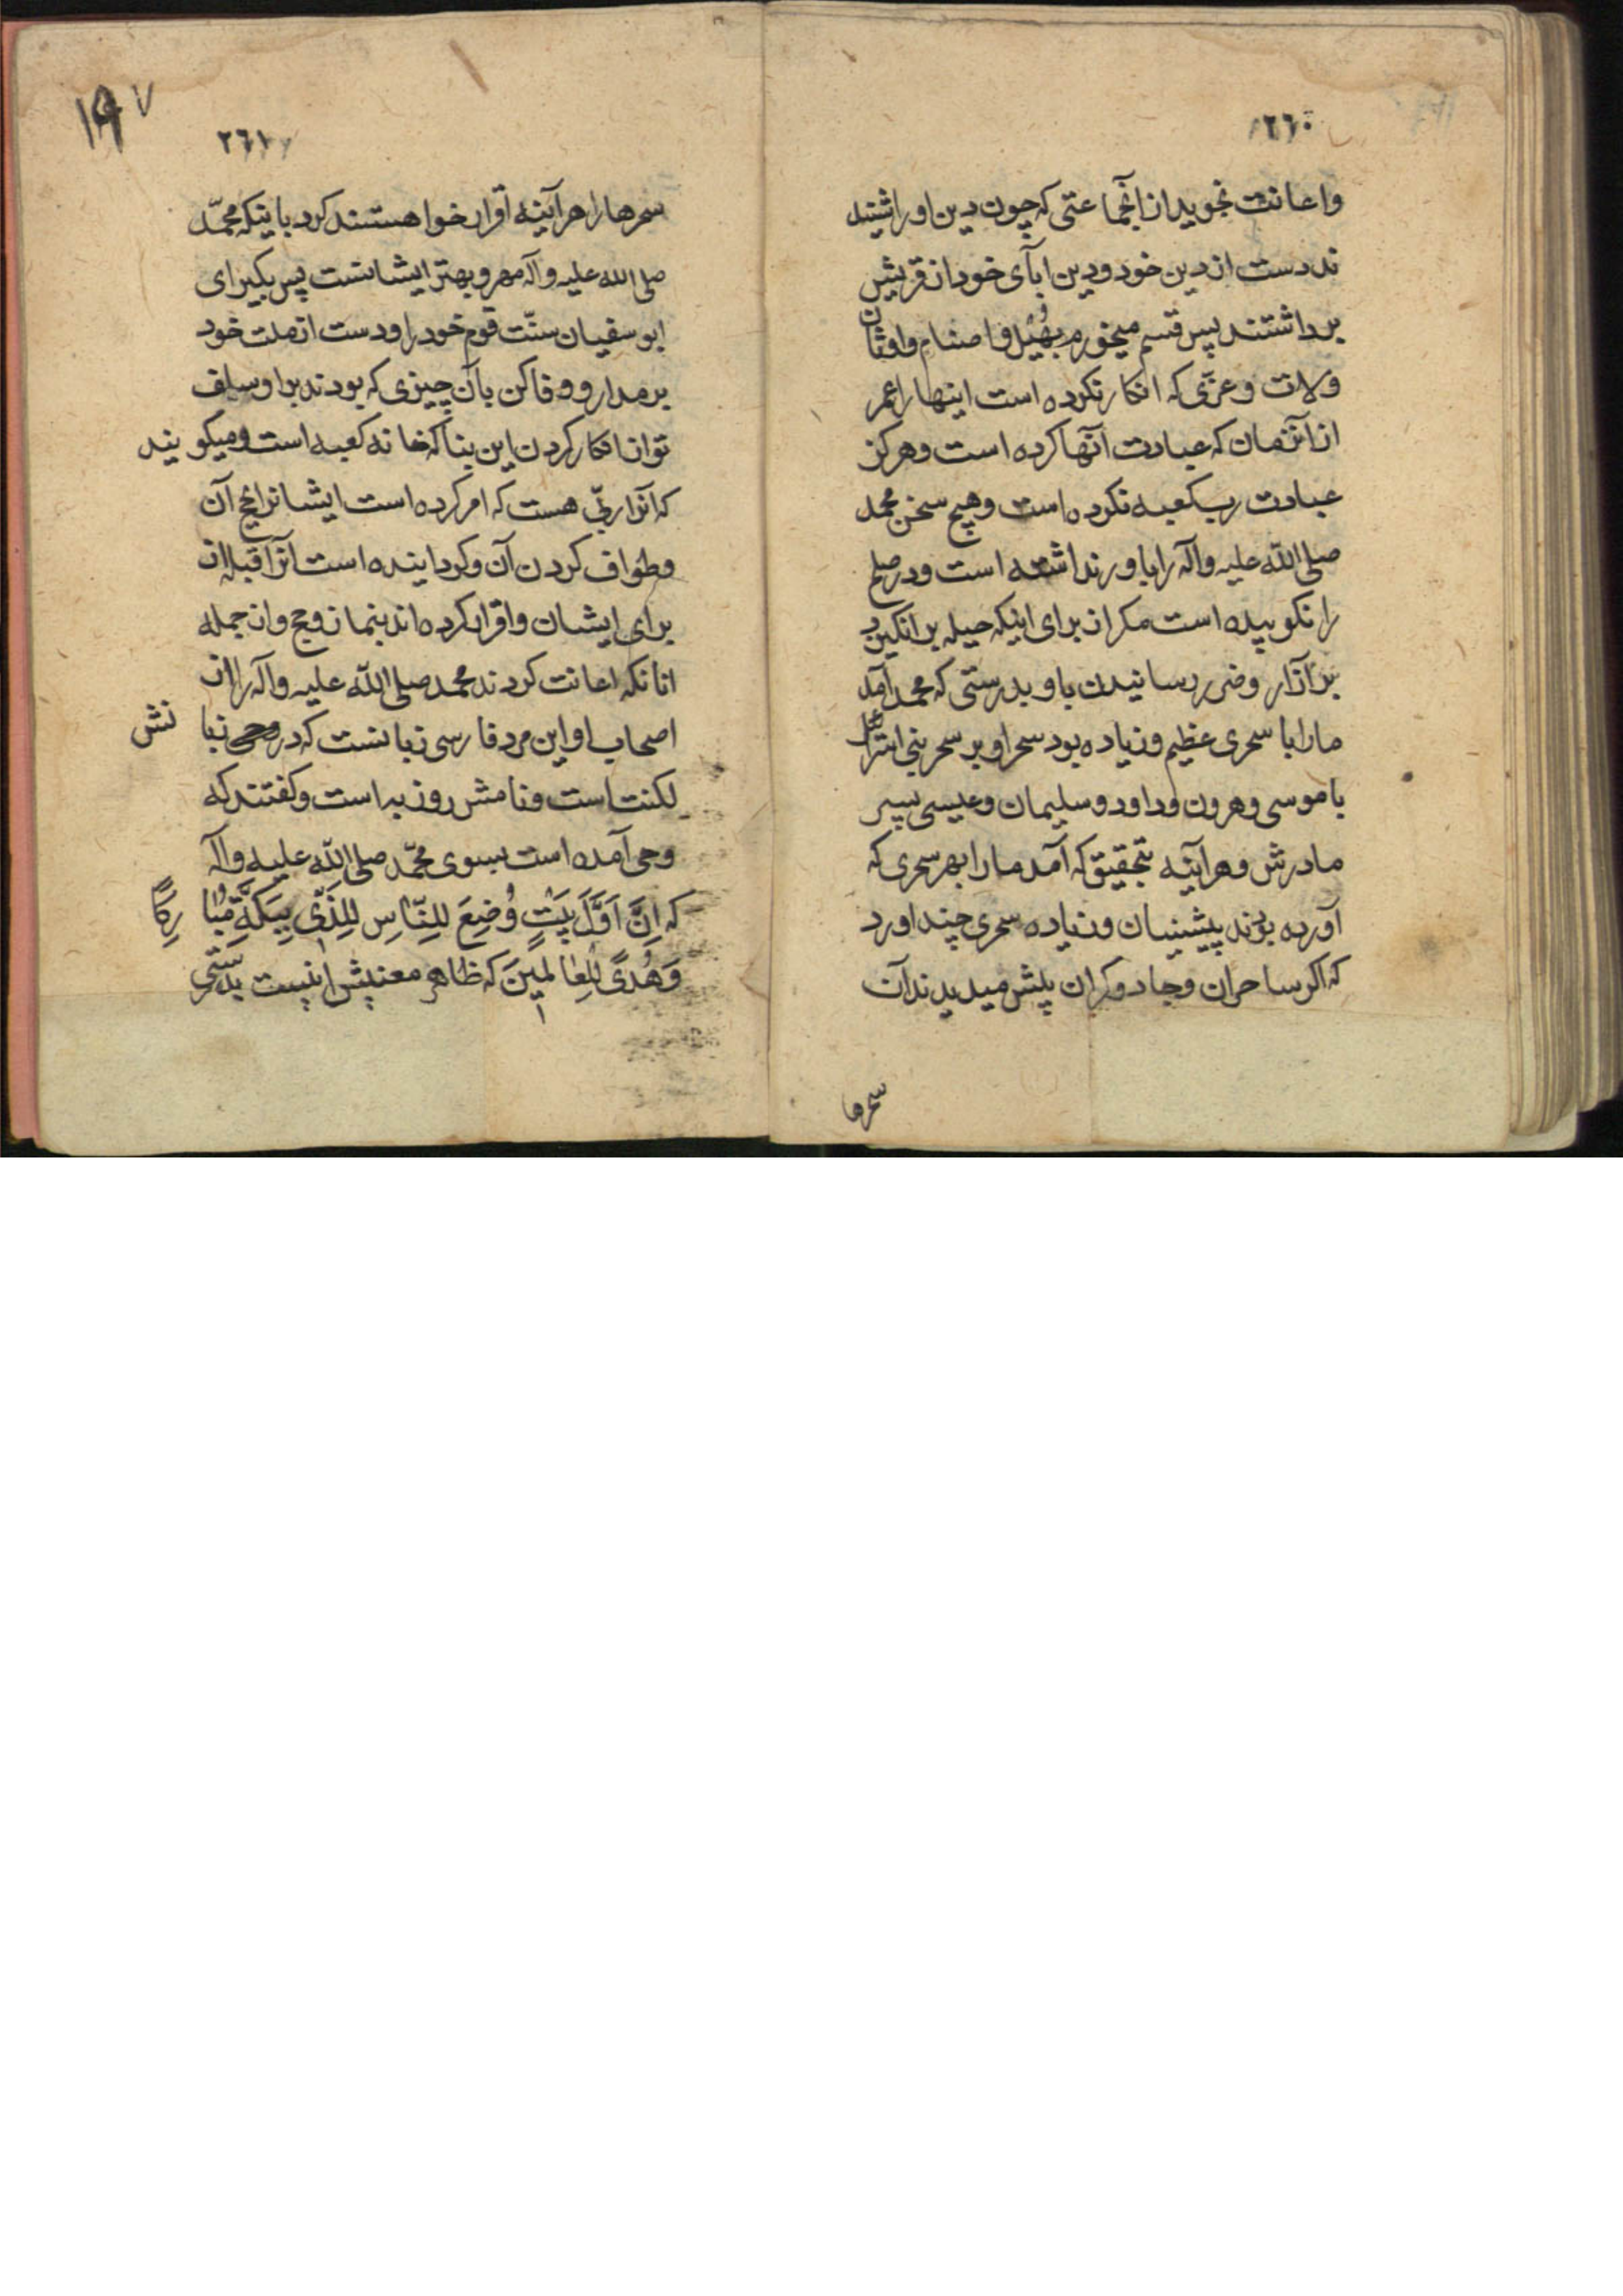 ٢٦٠
واعانت نجوید از آنجماعتی که چون دین او را شنید
ند دست از دین خود و دین ابآی خود از قریش
برداشتند پس قسم میخورم بهُبَل و اصنام و اوثان
و لات و عزّی که انکار نکرده است اینها را عمر
از آنزمان که عبادت آنها کرده است و هرکز
عبادت رب کعبه نکرده است و هیچ سخن محمد
صلی الله علیه وآله را باور نداشته است و در صلح
را نکوبیده است مکر از برای اینکه حیله بر انکیزد
بر آزار و ضرر رسانیدن باو بدرستی که محمد آمد
ما را با سحری عظیم و زیاده بود سحر او بر سحر بنی اسرائیل
با موسی و هرون و داود و سلیمان و عیسی پسر
مادرش و هر آینه بتحقیق که آمد ما را بهر سحری که
آورده بودند پیشینیان و زیاده سحری چند اورد
که اکر ساحران و جادوکران پیش میدیدند آن
سحرها
١٩٧
٢٦١
سحرها را هر آینه اقرار خواهستند کرد باینکه محمّد
صلی الله علیه وآله مهر و بهتر ایشانست پس بکیر ای
ابو سفیان سنّت قوم خود را و دست از ملت خود
برمدار و وفا کن بآن چیزی که بودند بر او سلف
تو از انکار کردن این بنا که خانه کعبه است و میکویند
که آنرا ربّی هست که امر کرده است ایشانرا بحج آن
و طواف کردن آن و کردانیده است آنرا قبله از
برای ایشان و اقرار کرده اند بنماز و حج و از جمله
انانکه اعانت کردند محمد صلی الله علیه وآله را از
اصحاب او این مرد فارسی زبانست که در زبانش
لکنت است و نامش روزبه است و کفتند که
وحی آمده است بسوی محمّد صلی الله علیه وآله
که اِنَّ اَوَّلَ بَیتٍ وُضِعَ لِلنّاسِ لَلَّذی بِبَکَّةَ مُبارِکاً
وَهُدیً لِلعالَمینَ که ظاهر معنیش اینست بدرستی